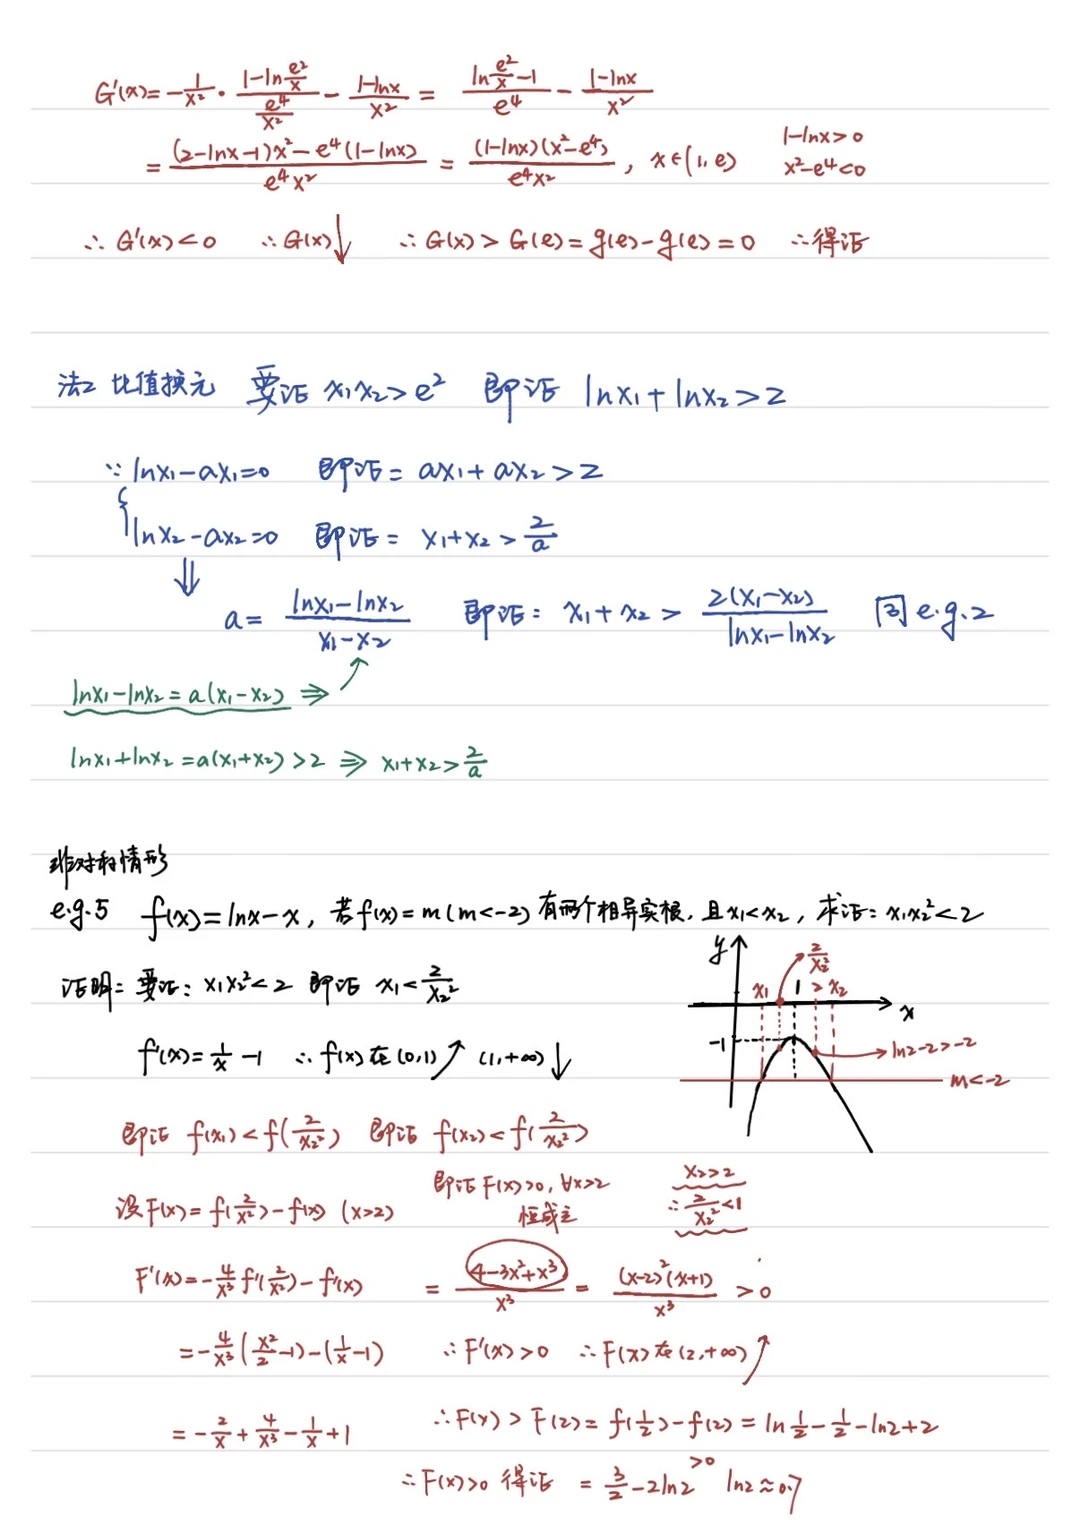 G'(x)=-\frac{1}{x^2}·\frac{1-ln\frac{e^2}{x}}{\frac{e^4}{x^2}}-\frac{1-lnx}{x^2}=\frac{ln\frac{e^2}{x}-1}{e^4}-\frac{1-lnx}{x^2}
=\frac{(2-lnx-1)x^2-e^4(1-lnx)}{e^4x^2}=\frac{(1-lnx)(x^2-e^4)}{e^4x^2}, x∈(1,e) 1-lnx>0
x^2-e^4<0
∴G'(x)<0 ∴G(x)↓ ∴G(x)>G(e)=g(e)-g(e)=0 ∴得证
法2 比值换元 要证 x₁x₂>e² 即证 lnx₁+lnx₂>2
∵lnx₁-ax₁=0 即证: ax₁+ax₂>2
lnx₂-ax₂=0 即证: x₁+x₂>\frac{2}{a}
⇓
a=\frac{lnx₁-lnx₂}{x₁-x₂} 即证: x₁+x₂>\frac{2(x₁-x₂)}{lnx₁-lnx₂} 同e.g.2
lnx₁-lnx₂=a(x₁-x₂) ⇒
lnx₁+lnx₂=a(x₁+x₂)>2 ⇒ x₁+x₂>\frac{2}{a}
非对称情形
e.g.5 f(x)=lnx-x, 若f(x)=m(m<-2)有两个相异实根, 且x₁<x₂, 求证: x₁x₂²<2
证明: 要证: x₁x₂²<2 即证 x₁<\frac{2}{x₂²}
f'(x)=\frac{1}{x}-1 ∴f(x)在(0,1)↗ (1,+∞)↓
y \frac{2}{x₂²}
x₁ 1 2 x₂
x
-1 ln2-2>-2
m<-2
即证 f(x₁)<f(\frac{2}{x₂²}) 即证 f(x₂)<f(\frac{2}{x₂²})
设F(x)=f(\frac{2}{x²})-f(x) (x>2) 即证F(x)>0, ∀x>2
恒成立
x₂>2
∴\frac{2}{x₂²}<1
F'(x)=-\frac{4}{x³}f'(\frac{2}{x²})-f'(x) =\frac{4-3x²+x³}{x³}=\frac{(x-2)²(x+1)}{x³}>0
=-\frac{4}{x³}(\frac{x²}{2}-1)-(\frac{1}{x}-1) ∴F'(x)>0 ∴F(x)在(2,+∞)↗
=-\frac{2}{x}+\frac{4}{x³}-\frac{1}{x}+1 ∴F(x)>F(2)=f(\frac{1}{2})-f(2)=ln\frac{1}{2}-\frac{1}{2}-ln2+2
∴F(x)>0 得证 =\frac{3}{2}-2ln2>0 ln2≈0.7